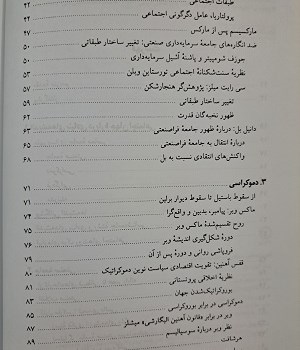 طبقات اجتماعی ۴۲
پرولتاریا، عامل دگرگونی اجتماعی ۴۴
مارکسیسم پس از مارکس ۴۷
ضد انگاره‌های جامعهٔ سرمایه‌داری صنعتی: تغییر ساختار طبقاتی ۵۰
جوزف شومپیتر و پاشنهٔ آشیل سرمایه‌داری ۵۲
نظریهٔ سنت‌شکنانهٔ اجتماعی تورستاین وبلن ۵۳
سی رایت میلز: پژوهش‌گر هنجارشکن ۵۷
تغییر ساختار طبقاتی
ظهور نخبه‌گان قدرت ۶۲
دانیل بل: دربارهٔ ظهور جامعهٔ فراصنعتی ۶۳
دربارهٔ انتقال به جامعهٔ فراصنعتی ۶۵
واکنش‌های انتقادی نسبت به بل ۶۸
۳. دموکراسی ۷۱
از سقوط باستیل تا سقوط دیوار برلین ۷۱
ماکس وبر: پیامبر، بدبین و واقع‌گرا ۷۴
روح تقسیم‌شدهٔ ماکس وبر
دورهٔ شکل‌گیری اندیشهٔ وبر
فروپاشی روانی و دورهٔ پس از آن
قفس آهنین: تقویت اقتصادی سیاست نوین دموکراتیک ۸۰
نظریهٔ اخلاقی پروتستانی
بوروکراتیک‌شدن جهان ۸۳
دموکراسی در برابر بوروکراسی ۸۵
وبر در برابر «قانون آهنین الیگارشی» میشلز ۸۷
نظر وبر دربارهٔ سوسیالیسم ۸۹